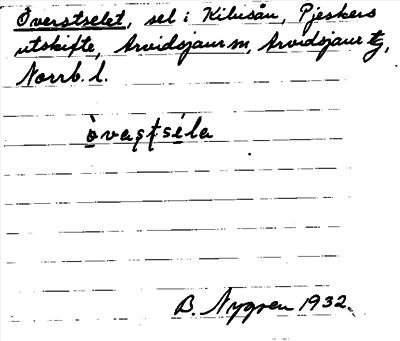 Överstselet, sel i Kilisån, Pjeskers
utskifte, Arvidsjaur sn, Arvidsjaur tg,
Norrb. l.
òvaʂʈséla
B. Nygren 1932.